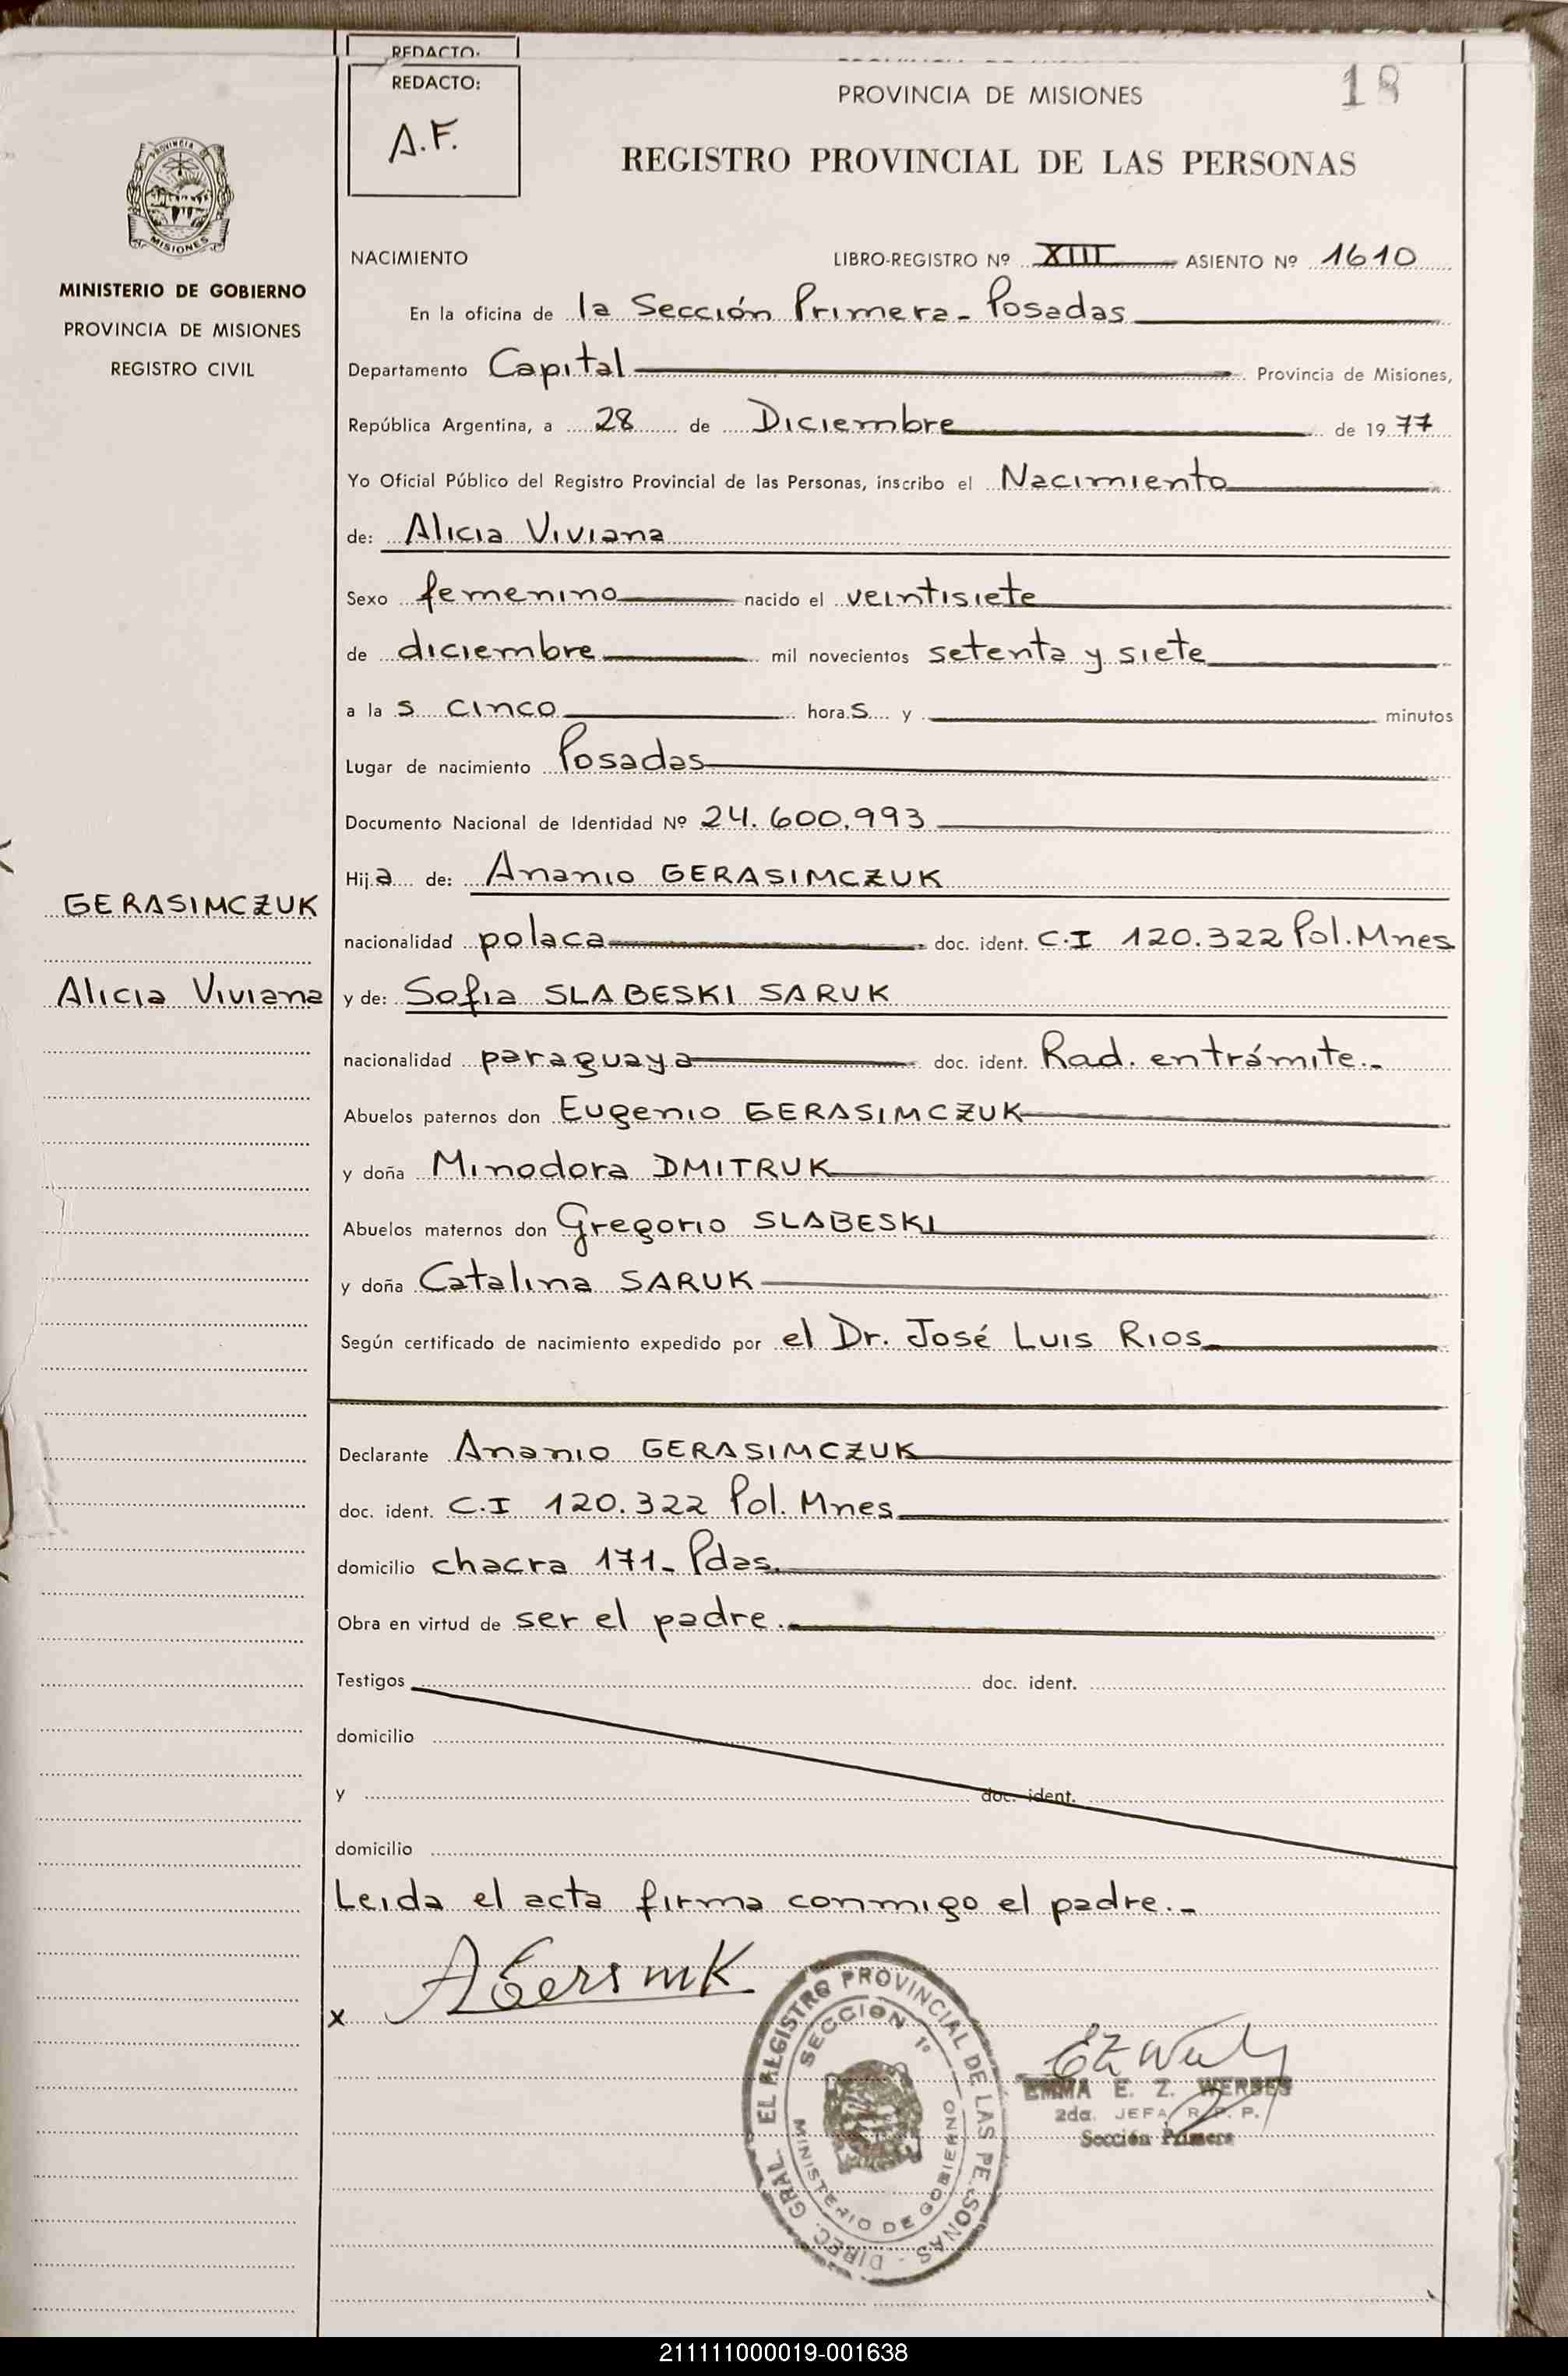 REDACTO:
REDACTO:
A.F.
PROVINCIA DE MISIONES
18
REGISTRO PROVINCIAL DE LAS PERSONAS
PROVINCIA DE
MISIONES
MINISTERIO DE GOBIERNO
PROVINCIA DE MISIONES
REGISTRO CIVIL
NACIMIENTO LIBRO-REGISTRO Nº XIII ASIENTO Nº 1610
En la oficina de la Sección Primera - Posadas
Departamento Capital Provincia de Misiones,
República Argentina, a 28 de Diciembre de 1977
Yo Oficial Público del Registro Provincial de las Personas, inscribo el Nacimiento
de: Alicia Viviana
Sexo femenino nacido el veintisiete
de diciembre mil novecientos setenta y siete
a las cinco horas y minutos
Lugar de nacimiento Posadas
Documento Nacional de Identidad Nº 24.600.993
Hija de: Ananio GERASIMCZUK
GERASIMCZUK
nacionalidad polaca doc. ident. C.I 120.322 Pol. Mnes
Alicia Viviana
y de: Sofia SLABESKI SARUK
nacionalidad paraguaya doc. ident. Rad. entrámite.-
Abuelos paternos don Eugenio GERASIMCZUK
y doña Minodora DMITRUK
Abuelos maternos don Gregorio SLABESKI
y doña Catalina SARUK
Según certificado de nacimiento expedido por el Dr. José Luis Rios
Declarante Ananio GERASIMCZUK
doc. ident. C.I 120.322 Pol. Mnes
domicilio chacra 171- Pdas.
Obra en virtud de ser el padre.-
Testigos doc. ident.
domicilio
y doc. ident.
domicilio
Leida el acta firma conmigo el padre.-
x
DIREC. GRAL. EL REGISTRO PROVINCIAL DE LAS PERSONAS -
SECCION 1º
MINISTERIO DE GOBIERNO
EMMA E. Z. WERBES
2da. JEFA R. P. P.
Sección Primera
211111000019-001638